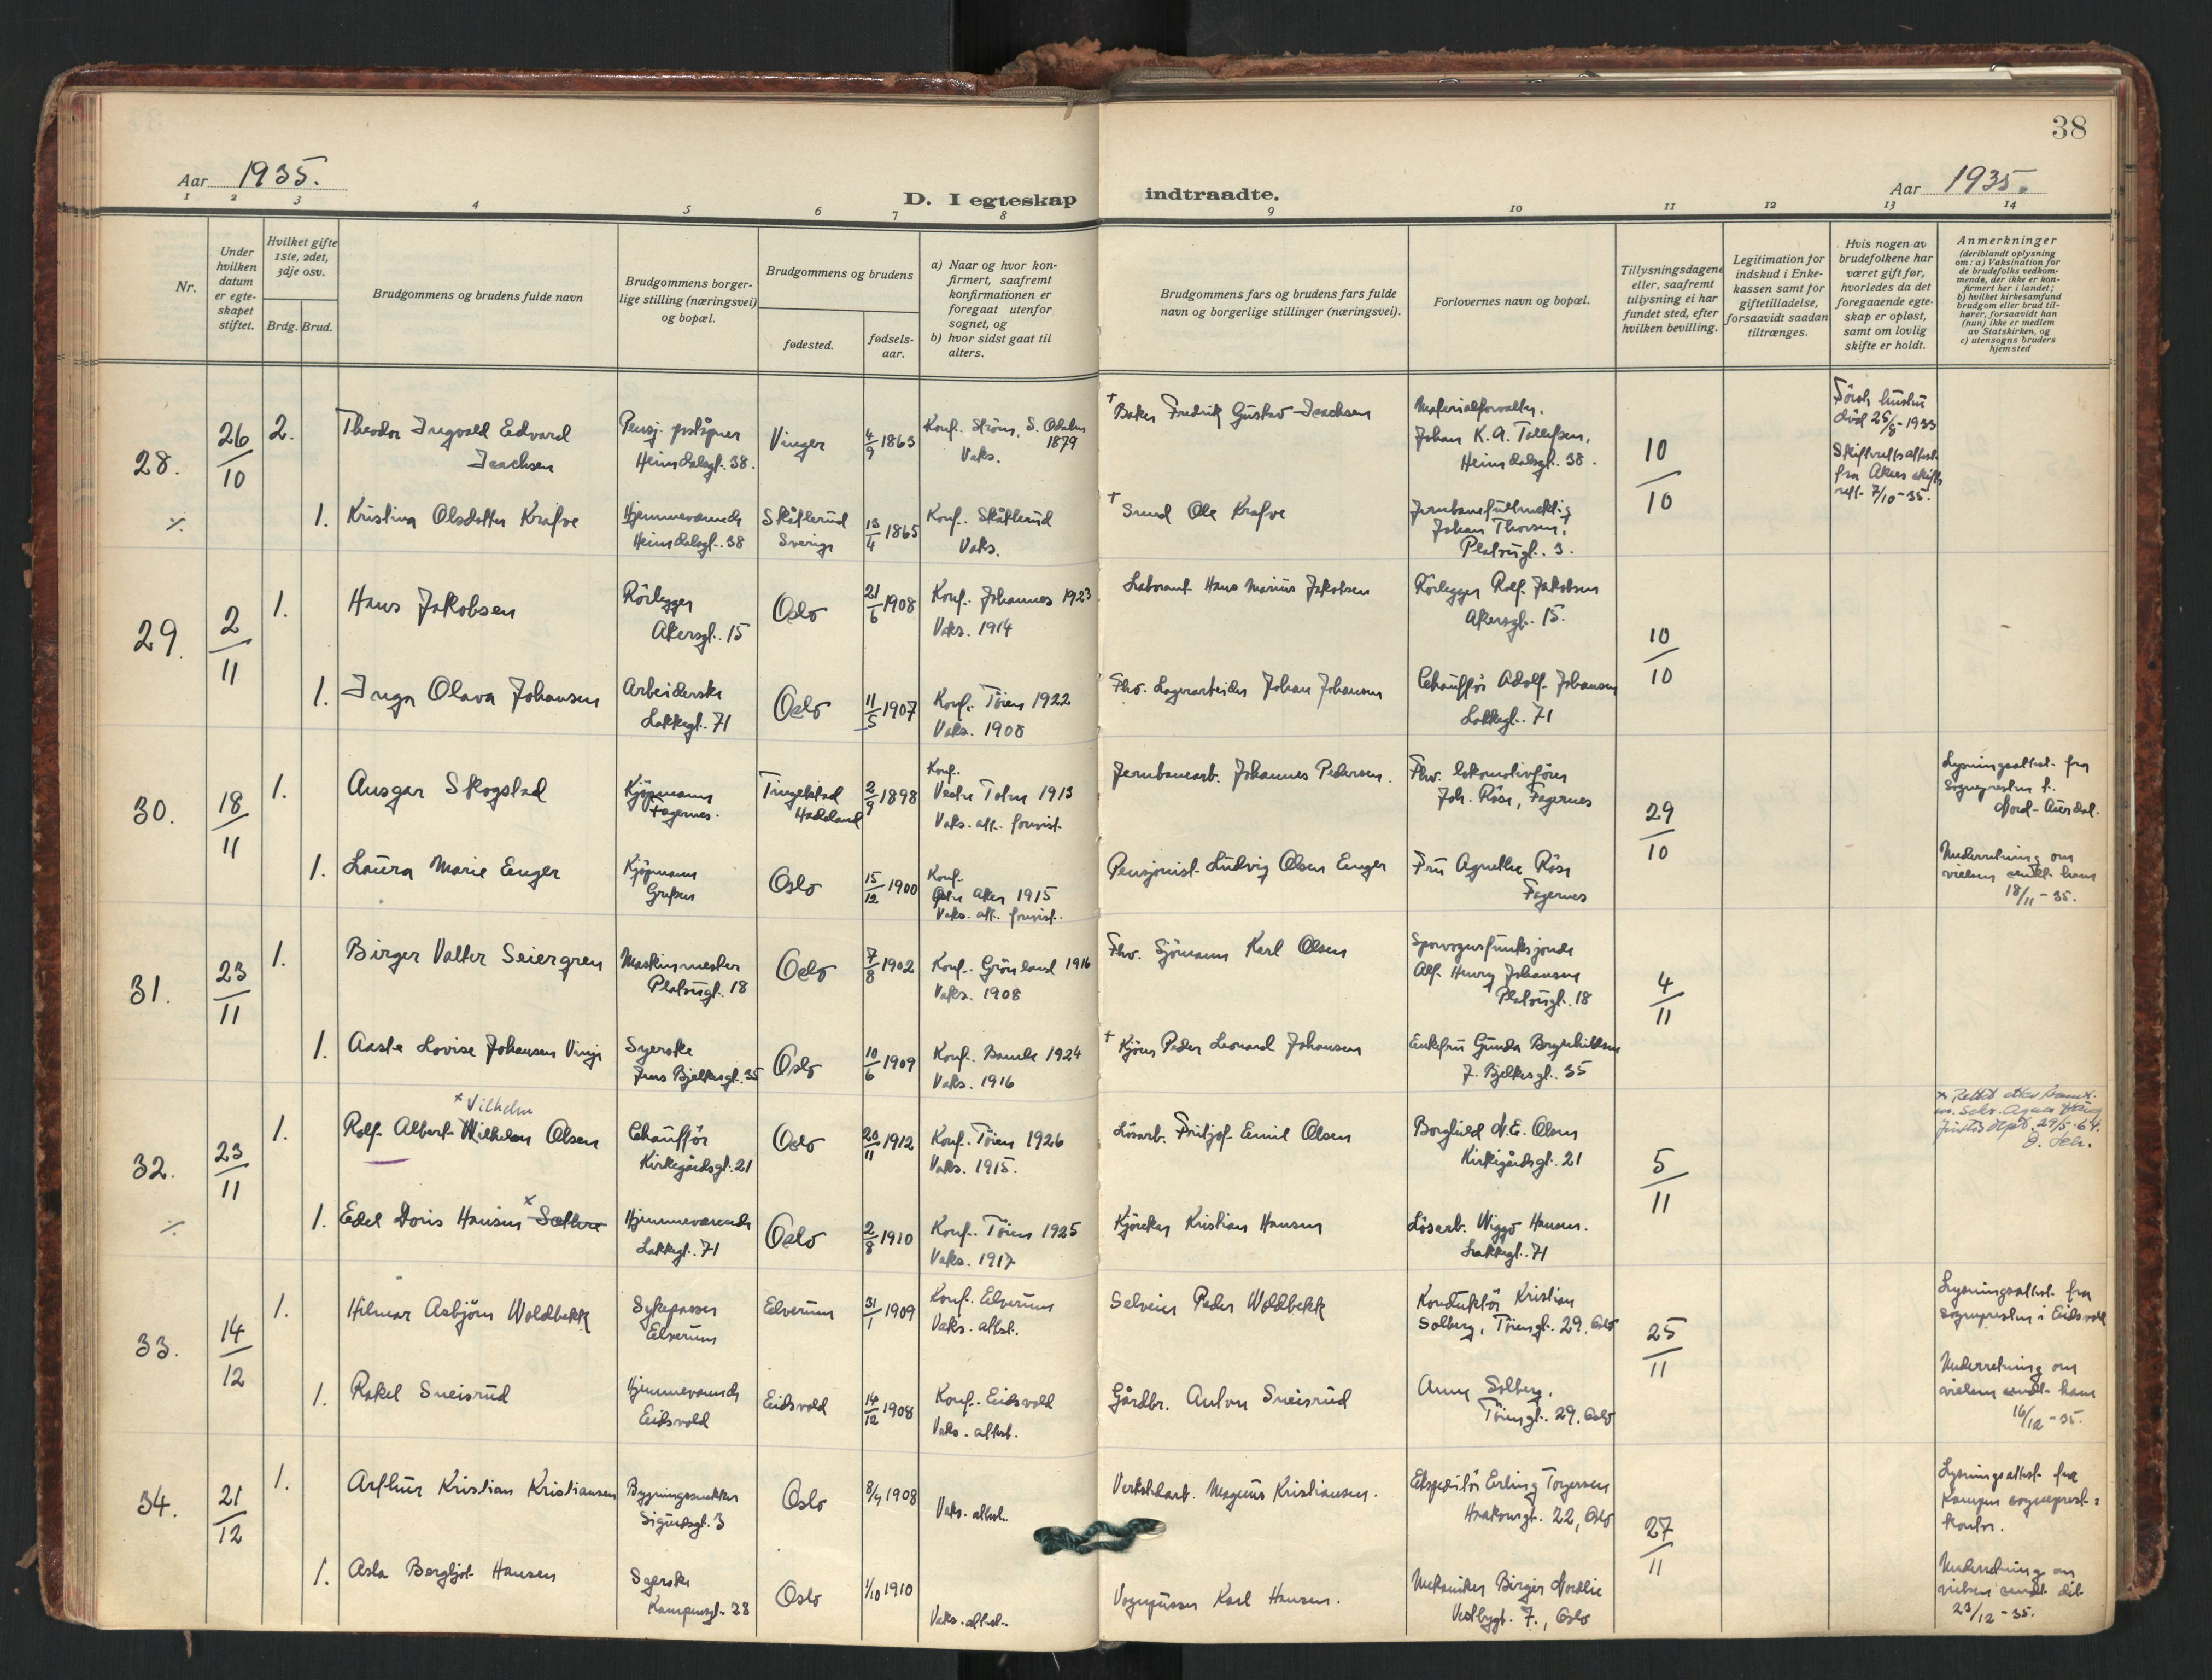 38
Aar 1935.
D. I egteskap indtraadte.
Aar 1935.
1 2 3 4 5 6 7 8 9 10 11 12 13 14
Nr.
Under hvilken datum er egteskapet stiftet.
Hvilket gifte 1ste, 2det, 3dje osv.
Brdg. Brud.
Brudgommens og brudens fulde navn
Brudgommens borgerlige stilling (næringsvei) og bopæl.
Brudgommens og brudens
fødested.
fødselsaar.
a) Naar og hvor konfirmert, saafremt konfirmationen er foregaat utenfor sognet, og
b) hvor sidst gaat til alters.
Brudgommens fars og brudens fars fulde navn og borgerlige stillinger (næringsvei).
Forlovernes navn og bopæl.
Tillysningsdagene eller, saafremt tillysning ei har fundet sted, efter hvilken bevilling.
Legitimation for indskud i Enkekassen samt for giftetilladelse, forsaavidt saadan tiltrænges.
Hvis nogen av brudefolkene har været gift før, hvorledes da det foregaaende egteskap er opløst, samt om lovlig skifte er holdt.
Anmerkninger (deriblandt oplysning om: a) Vaksination for de brudefolks vedkommende, der ikke er konfirmert her i landet; b) hvilket kirkesamfund brudgom eller brud tilhører, forsaavidt han (hun) ikke er medlem av Statskirken, og c) utensogns bruders hjemsted
28. 26/10 2. Theodor Ingvald Edvard
Isachsen
Pensj. poståpner
Heimdalsgt. 38.
Vinger
4/9 1863
Konf. Strøm, S. Odalen
1879
Vaks.
† Baker Fredrik Gustav Isachsen
Materialforvalter.
Johan K. A. Tollefsen,
Heimdalsgt. 38.
10/10
død 25/8-1933
Skifterettsattest
fra Akers skifte
rett 7/10-35.
1. Kristina Olsdotter Krafve
Hjemmeværende
Heimdalsgt. 38
Skåtlerud
Sverige
13/4 1865
Konf. Skåtlerud
Vaks.
† Smed Ole Krafve
Jernbanefullmektig
Johan Thorsen,
Platougt. 3.
29. 2/11 1. Hans Jakobsen
Rørlegger
Akersgt. 15
Oslo
21/6 1908
Konf. Johannes 1923
Vaks. 1914
Laborant Hans Marius Jakobsen
Rørlegger Rolf Jakobsen
Akersgt. 15.
10/10
1. Inga Olava Johansen
Arbeiderske
Lakkegt. 71
Oslo
11/5 1907
Konf. Tøien 1922
Vaks. 1908
Fhv. Lagerarbeider Johan Johansen
Chauffør Adolf Johansen
Lakkegt. 71
30. 18/11 1. Ansgar Skogstad
Kjøpmann
Fagernes.
Tingelstad
Hadeland
2/9 1898
Konf.
Vestre Toten 1913
Vaks. att. forevist.
Jernbanearb. Johannes Pedersen.
Fhv. lokomotivfører
Joh. Røse, Fagernes
29/10
Lysningsattest fra
Sognepresten f.
Nord-Aurdal.
1. Laura Marie Enger
Kjøpmann
Grefsen
Oslo
15/12 1900
Konf.
Østre Aker 1915
Vaks. att. forevist.
Pensjonist Ludvig Olsen Enger
Fru Agnethe Røse
Fagernes
Underretning om
vielsen sendt ham
18/11-35.
31. 23/11 1. Birger Valter Seiergren
Maskinmester
Platougt. 18
Oslo
7/8 1902
Konf. Grønland 1916
Vaks. 1908
Fhv. Sjømann Karl Olsen
Sporvognsfunksjonær
Alf Henry Johansen
Platougt. 18
4/11
1. Aasta Lovise Johansen Vinje
Syerske
Jens Bjelkesgt. 35
Oslo
10/6 1909
Konf. Bamble 1924
Vaks. 1916
† Kjører Peder Leonard Johansen
Enkefru Gunda Borghildsen
J. Bjelkesgt. 35
32. 23/11 1. × Vilhelm
Rolf Albert Wilhelm Olsen
Chauffør
Kirkegårdsgt. 21
Oslo
20/11 1912
Konf. Tøien 1926
Vaks. 1915.
Løsarb. Fritjof Emil Olsen
Borghild N. E. Olsen
Kirkegårdsgt. 21
5/11
× Rettet etter
Justisdept. 29/5-64.
1. Edel Doris Hansen × Sættre
Hjemmeværende
Lakkegt. 71
Oslo
2/8 1910
Konf. Tøien 1925
Vaks. 1917
Kjørekar Kristian Hansen
Løsarb. Wiggo Hansen.
Lakkegt. 71
33. 14/12 1. Hilmar Asbjørn Woldbekk
Sykepasser
Elverum
Elverum
31/1 1909
Konf. Elverum
Vaks. attest.
Selveier Peder Woldbekk
Konduktør Kristian
Solberg, Tøiengt. 29, Oslo
25/11
Lysningsattest fra
sognepresten i Eidsvoll
1. Rakel Sneisrud
Hjemmeværende
Eidsvold
Eidsvold
14/12 1908
Konf. Eidsvold
Vaks. attest.
Gårdbr. Anton Sneisrud
Anne Solberg,
Tøiengt. 29, Oslo
Underretning om
vielsen sendt ham
16/12-35.
34. 21/12 1. Arthur Kristian Kristiansen
Bygningssnekker
Sigurdsgt. 3
Oslo
1908
Vaks. attest.
Verkstedarb. Magnus Kristiansen.
Ekspeditør Erling Torgersen
Haakonsgt. 22, Oslo
27/11
Lysningsattest fra
Kampen sogneprest-
kontor.
1. Asta Bergljot Hansen
Syerske
Kampensgt. 28
Oslo
1/10 1910
Vaks. attest.
Vognpusser Karl Hansen.
Mekaniker Birger Nordlie
Vestbygt. 7, Oslo
Underretning om
vielsen sendt dit
23/12-35.